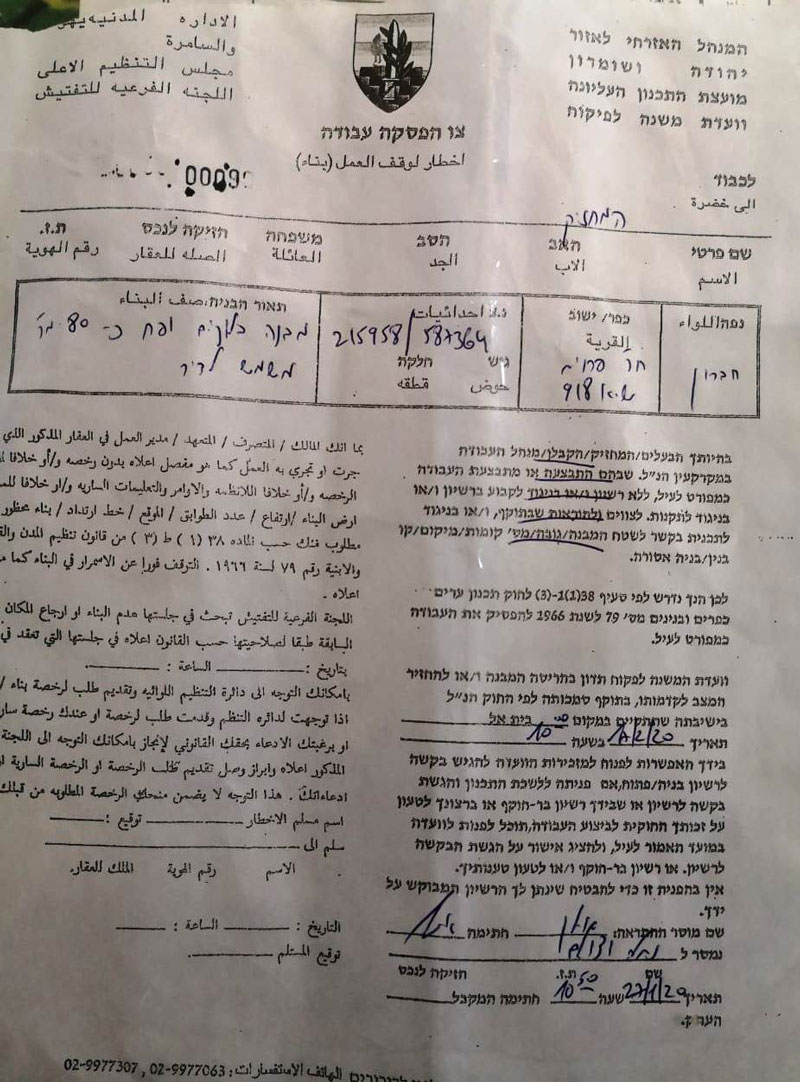 המנהל האזרחי לאזור
יהודה ושומרון
מועצת התכנון העליונה
וועדת משנה לפיקוח
الاداره المدنيه
والسامرة
مجلس التنظيم الاعلى
اللجنه الفرعيه للتفتيش
צו הפסקה עבודה
اخطار لوقف العمل (بناء)
לכבוד
الى حضرة
המחזיק
שם פרטי האב הסב משפחה חזיקה לנכס ת.ז.
الاسم الاب الجد العائلة الصله للعقار رقم الهوية
נפה/הלואء
חברון
כפר/ ישוב
القرية
נ.צ احداثيات
215958/587364
גיש חלקה
حوض قطعه
תאור הבניה:صف البناء
מבנה בלוקים ופח כ- 80 מ"ר
משמש לדיר
בהיותך הבעלים/המחזיק/הקבלן/מנהל העבודה
במקרקעין הנ"ל. שבהם התבצעה או מתבצעת העבודה
כמפורט לעיל, ללא רשיון ו/או בניגוד לקבוע ברשיון ו/או
בניגוד לתקנות. לצווים ולהוראות שבתוקף, ו/או בניגוד
לתכנית בקשר לשטח המבנה/גובה/מס' קומות/מיקום/קו
בנין/בניה אסורה.
לכן הנך נדרש לפי סעיף 38(1)-(3) לחוק תכנון ערים
כפרים ובנינים מס' 79 לשנת 1966 להפסיק את העבודה
כמפורט לעיל.
וועדת המשנה לפקוח תדון בהריסת המבנה ו/או להחזיר
המצב לקדמותו, בתוקף סמכותה לפי החוק הנ"ל
בישיבתה שתתקיים במקום בית אל
תאריך בשעה 10
בידך האפשרות לפנות למזכירות הוועדה להגיש בקשה
לרשיון בניה/פתוח,אם פניתה ללשכת התכנון והגשת
בקשה לרשיון או שבידך רשיון בר-תוקף או ברצונך לטעון
על זכותך החוקית לביצוע העבודה,תוכל לפנות לוועדה
במועד האמור לעיל, ולהציג אישור על הגשת הבקשה
לרשיון. או רשיון בר-תוקף ו/או לטעון טענותיך.
אין בהפניה זו כדי להבטיח שינתן לך הרשיון המבוקש על
ידך.
שם מוסר ההתראה: חתימה
נמסר ל
שם ת.ז. חזיקה לנכס
תאריך 27/1/20 שעה 10 50 חתימה המקבל
הערה:
بما انك المالك / المتصرف / المتعهد / مدير العمل في العقار المذكور الذي
جرت او تجري به العمل كما هو مفصل اعلاه بدون رخصه و/أو خلافا
الرخصه و/أو خلافا للانظمه والاوامر والتعليمات الساريه و/او خلافا
ارض البناء /ارتفاع / عدد الطوابق / الموقع / خط ارتداد / بناء محظور
مطلوب منك حسب الماده ٣٨ (١) ط (٣) من قانون تنظيم المدن
والابنية رقم ٧٩ لسنة ١٩٦٦ . التوقف فورا عن الاستمرار في البناء كما
اعلاه .
اللجنة الفرعية للتفتيش تبحث في جلستها هدم البناء او ارجاع المكان
السابقة طبقا لصلاحيتها حسب القانون اعلاه في جلستها التي تعقد في
بتاريخ : الساعة :
بامكانك التوجه الى دائرة التنظيم اللوائيه وتقديم طلب لرخصة بناء /
اذا توجهت لدائره التنظم وقدمت طلب لرخصة او عندك رخصة
او برغبتك الادعاء بحقك القانوني لإنجاز بامكانك التوجه الى اللجنة
المذكور اعلاه وابراز وصل تقديم طلب الرخصة او الرخصة السارية
ادعاءاتك . هذا التوجه لا يضمن منحك الرخصة المطلوبه من قبلك
اسم مسلم الاخطار توقيع :
سلم الى
الاسم رقم الهوية الملك للعقار.
التاريخ : الساعة :
توقيع المستلم
الهاتف الاستفسارات: 02-9977063 , 02-9977307